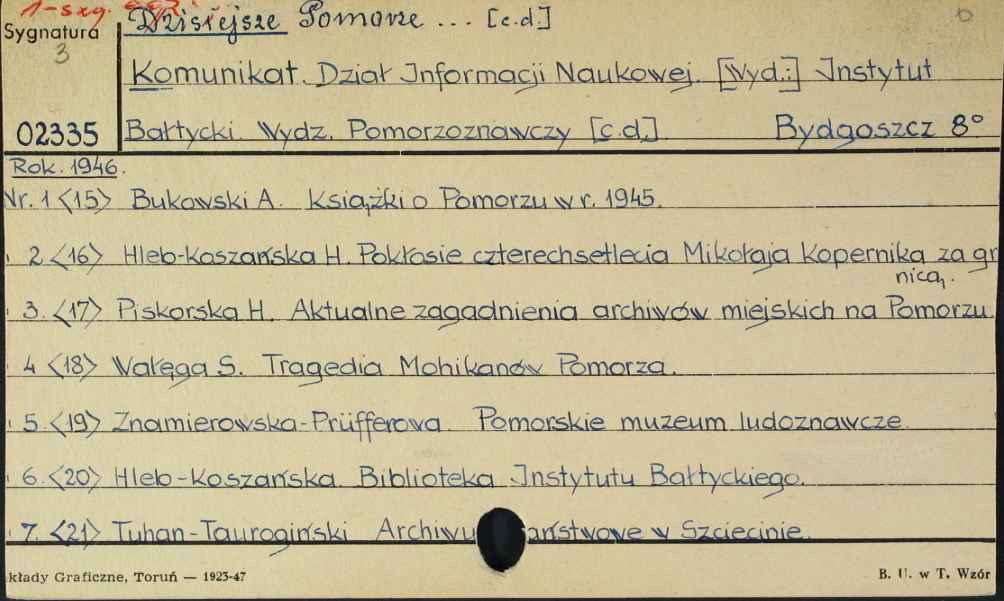 Dzisiejsze Pomorze ... [c.d.]
Sygnatura
3
Komunikat. Dział Informacji Naukowej. [Wyd.:] Instytut
02335 Bałtycki. Wydz. Pomorzoznawczy [c.d.] Bydgoszcz 8°
Rok. 1946.
Nr. 1 <15> Bukowski A. Książki o Pomorzu w r. 1945.
2 <16> Hleb-Koszańska H. Pokłosie czterechsetlecia Mikołaja Kopernika za gr
nicą.
3. <17> Piskorska H. Aktualne zagadnienia archiwów miejskich na Pomorzu
4 <18> Wałęga S. Tragedia Mohikanów Pomorza.
5. <19> Znamierowska-Prüfferowa. Pomorskie muzeum ludoznawcze.
6. <20> Hleb-Koszańska. Biblioteka Instytutu Bałtyckiego.
7. <21> Tuhan-Taurogiński Archiwu aństwowe w Szczecinie.
kłady Graficzne, Toruń — 1923-47
B. U. w T. Wzór